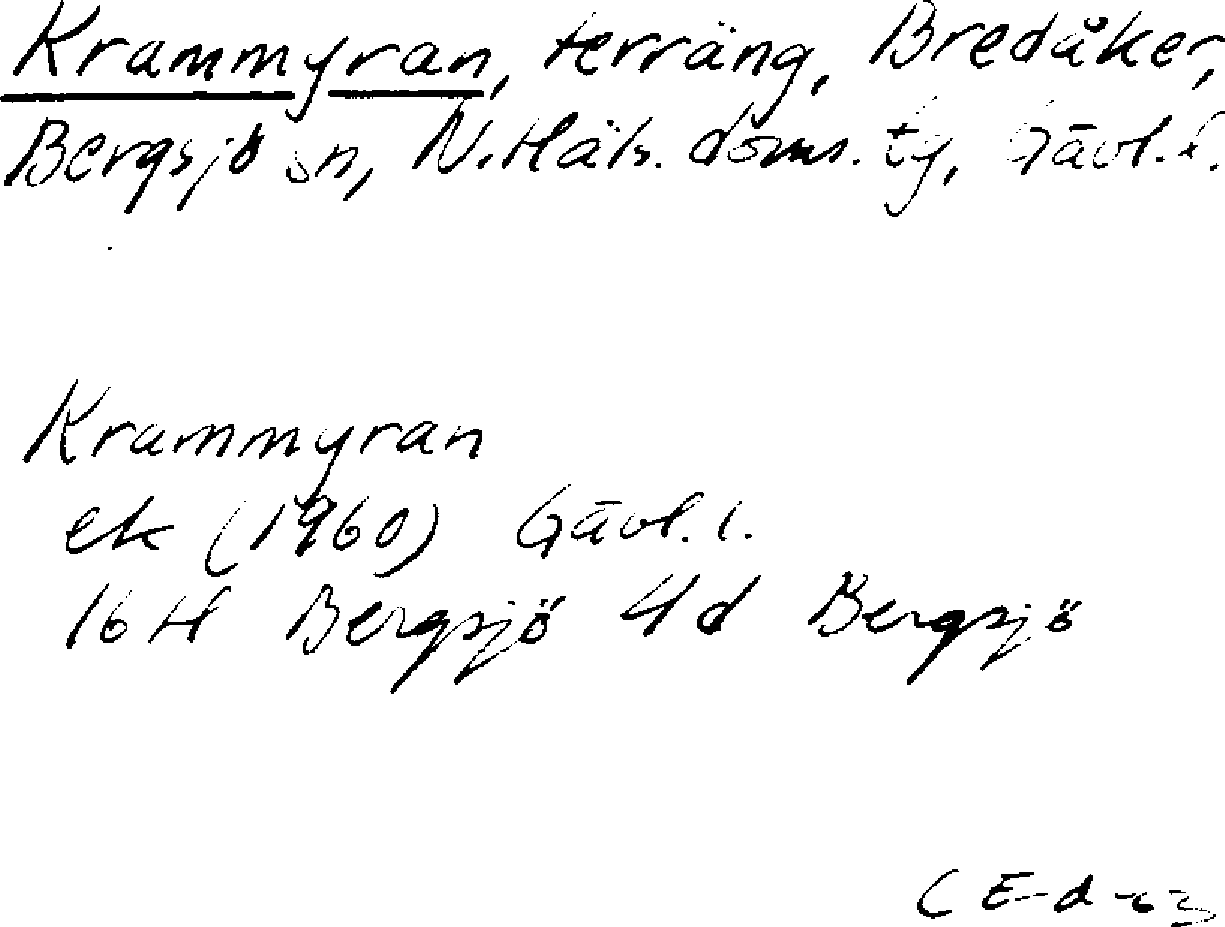 Krammyran, terräng, Bredåker,
Bergsjö sn, N. Häls. doms. tg, Gävl. l.
Krammyran
ek (1960) Gävl. l.
16H Bergsjö 4d Bergsjö
CE-d -63